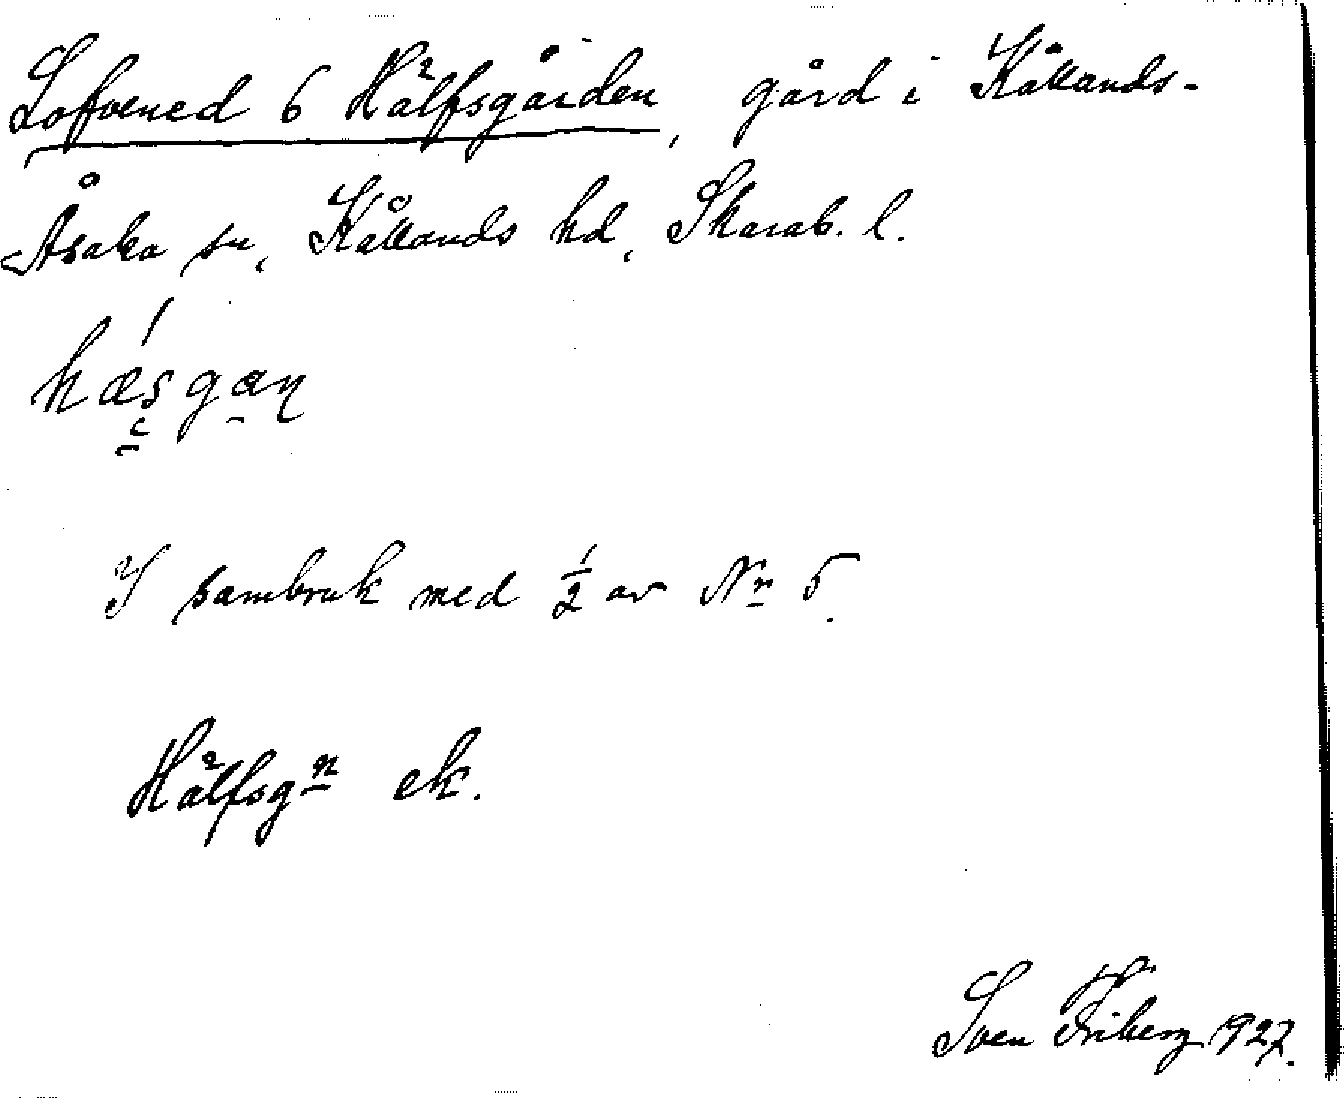 Lofvened 6 Hälfsgården, gård i Kållands-
Åsaka sn, Kållands hd, Skarab. l.
hæsgan
I sambruk med ½ av Nr 5.
Hälfsgn ek.
Sven Friberg 1927.